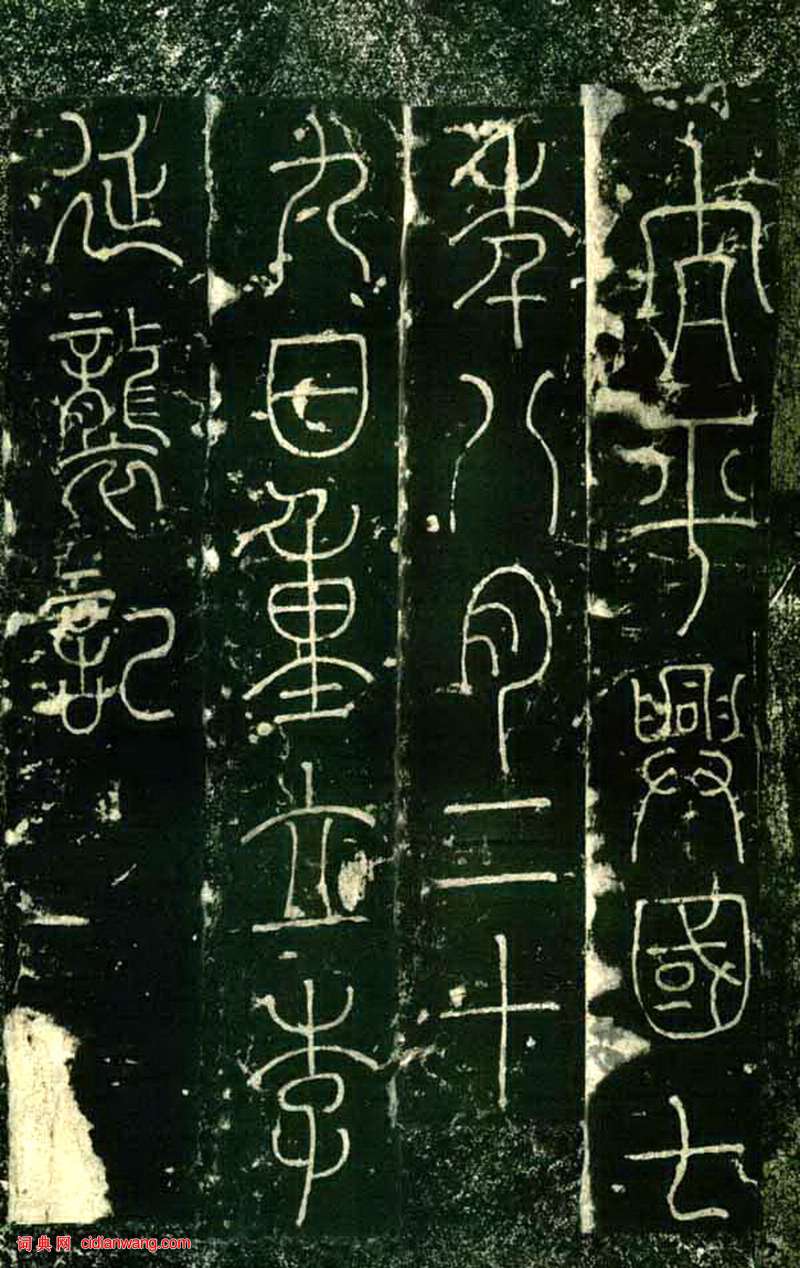 太平興國七
年八月二十
九日重立李
延襲記
词典网 cidianwang.com